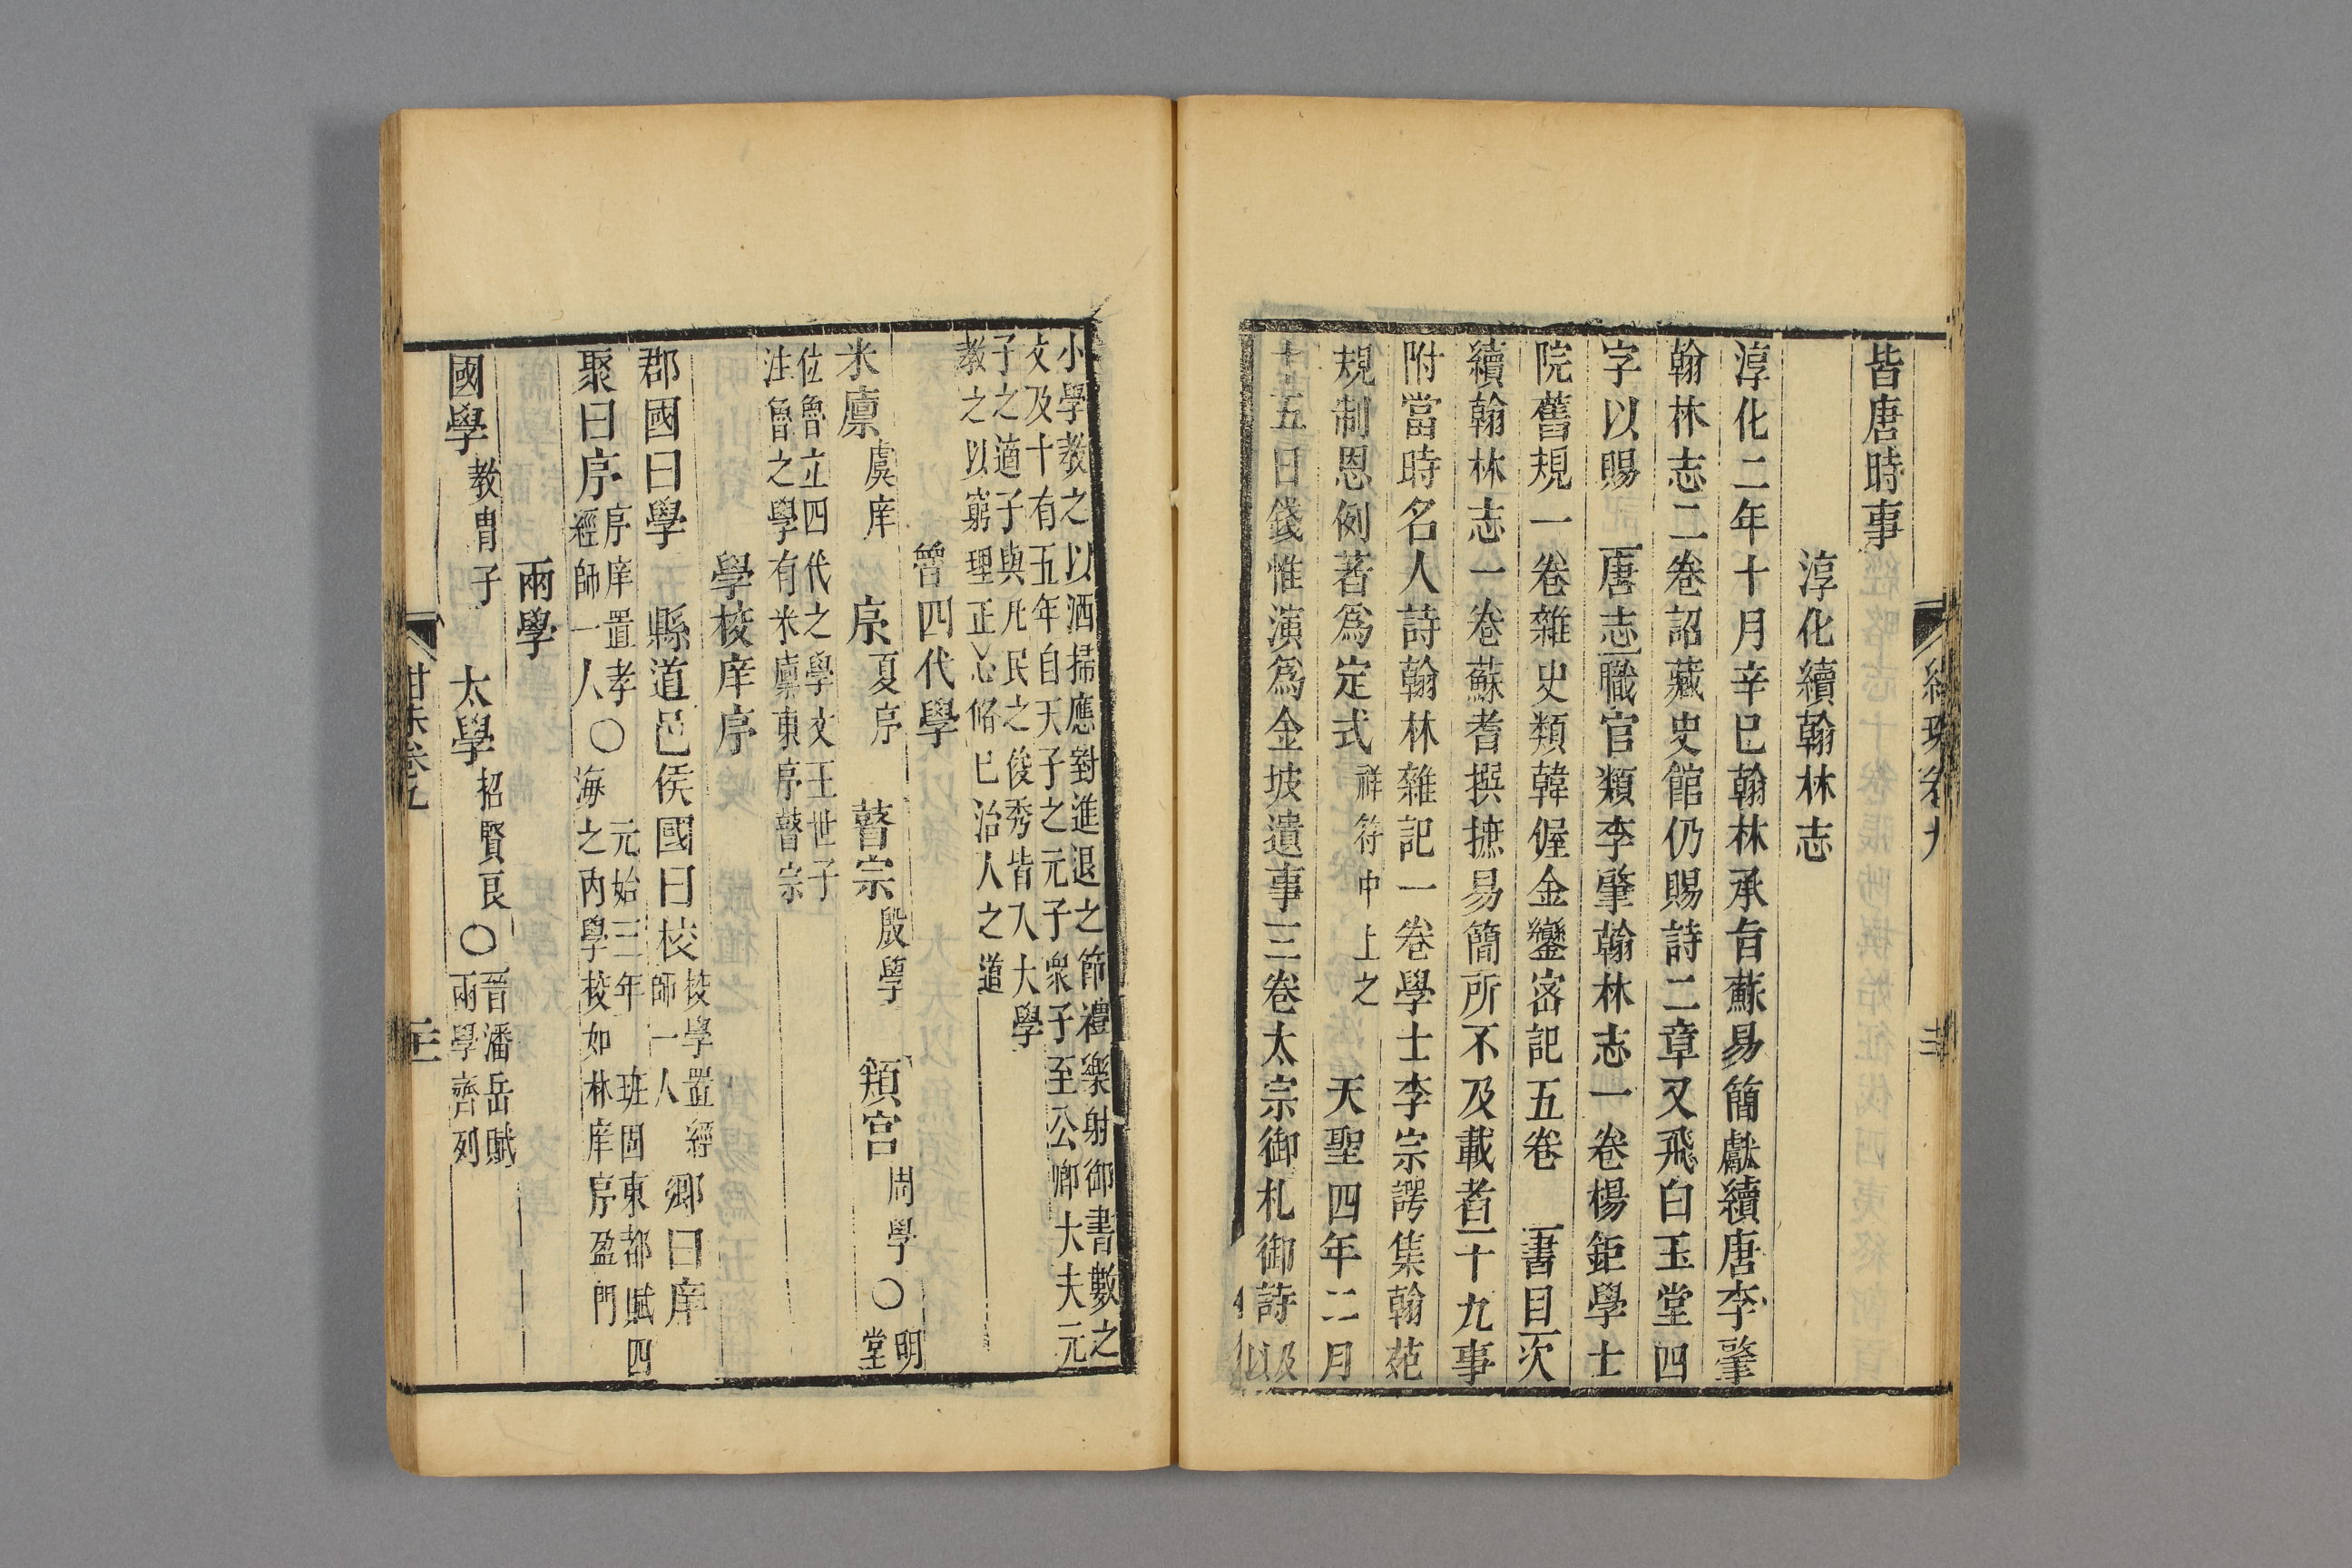 皆唐時事
淳化續翰林志
淳化二年十月辛巳翰林承旨蘇易簡獻續唐李肇
翰林志二卷詔藏史館仍賜詩二章又飛白玉堂四
字以賜 唐志職官類李肇翰林志一卷楊鉅學士
院舊規一卷雜史類韓偓金鑾宻記五卷 書目次
續翰林志一卷蘇耆撰摭易簡所不及載者二十九事
附當時名人詩翰林雜記一卷學士李宗諤集翰苑
規制恩例著爲定式祥符中上之 天聖四年二月
十五日錢惟演爲金坡遺事三卷太宗御札御詩及
以
小學教之以洒掃應對進退之節禮樂射御書數之
文及十有五年自天子之元子衆子至公卿大夫元
子之適子與凡民之俊秀皆入大學
教之以窮理正心脩巳治人之道
曾四代學
米廪虞庠 序夏序 瞽宗殷學 頖宫周學〇明
堂
位魯立四代之學文王世子
注魯之學有米廪東序瞽宗
學校庠序
郡國曰學 縣道邑侯國曰校校學置經
師一人鄉曰庠
聚曰序序庠置孝
經師一人〇元始三年 班固東都賦四
海之内學校如林庠序盈門
兩學
國學教胄子 太學招賢良〇晉潘岳賦
兩學齊列